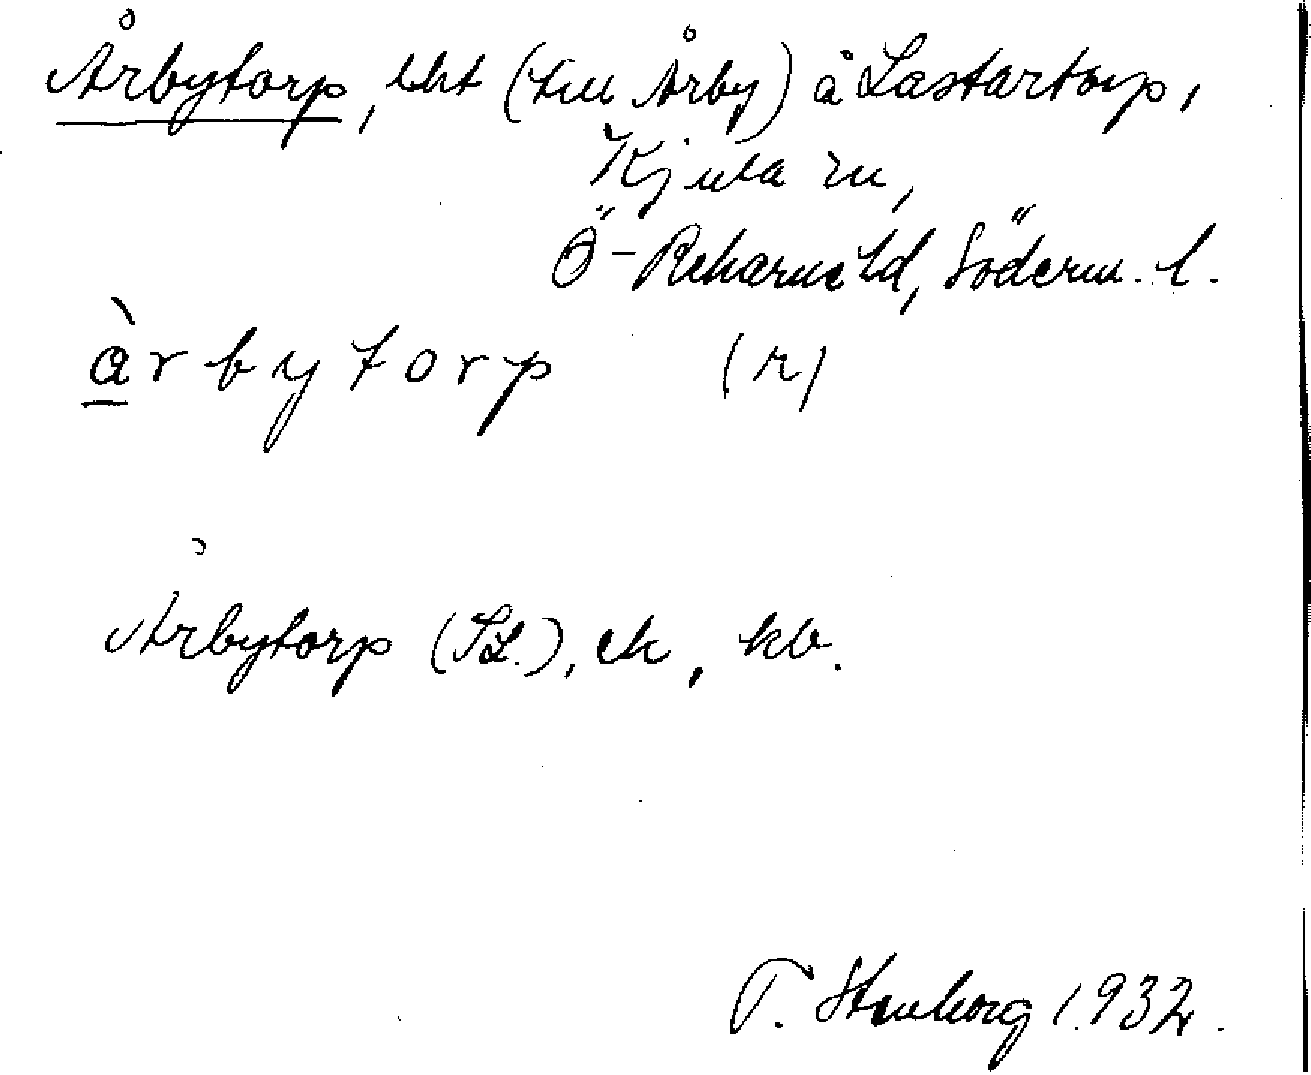 Årbytorp, lht (till Årby) å Lastartorp,
Kjula sn,
Ö-Rekarne hd, Söderm. l.
àrbytorp (r)
Årbytorp (SL.), ek, kb.
T. Stenborg 1932.